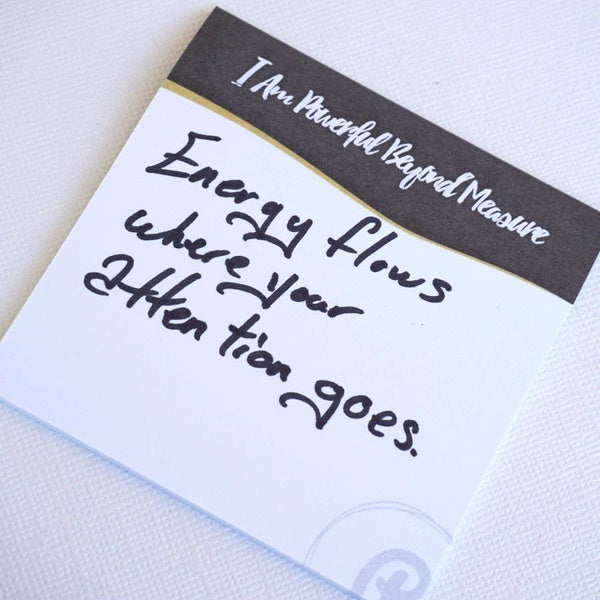 I Am Powerful Beyond Measure
Energy flows
where your
attention goes.